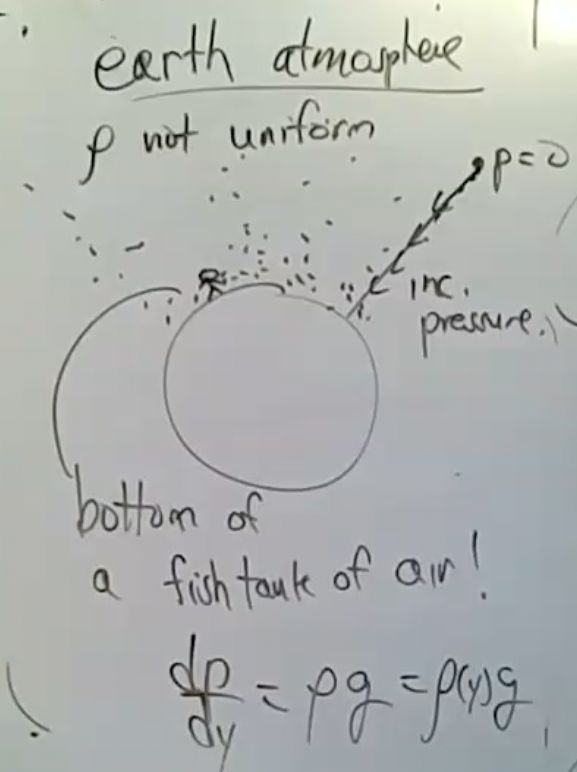 earth atmosphere
ρ not uniform
p = 0
inc.
pressure.
bottom of
a fish tank of air!
dp/dy = ρg = ρ(y)g